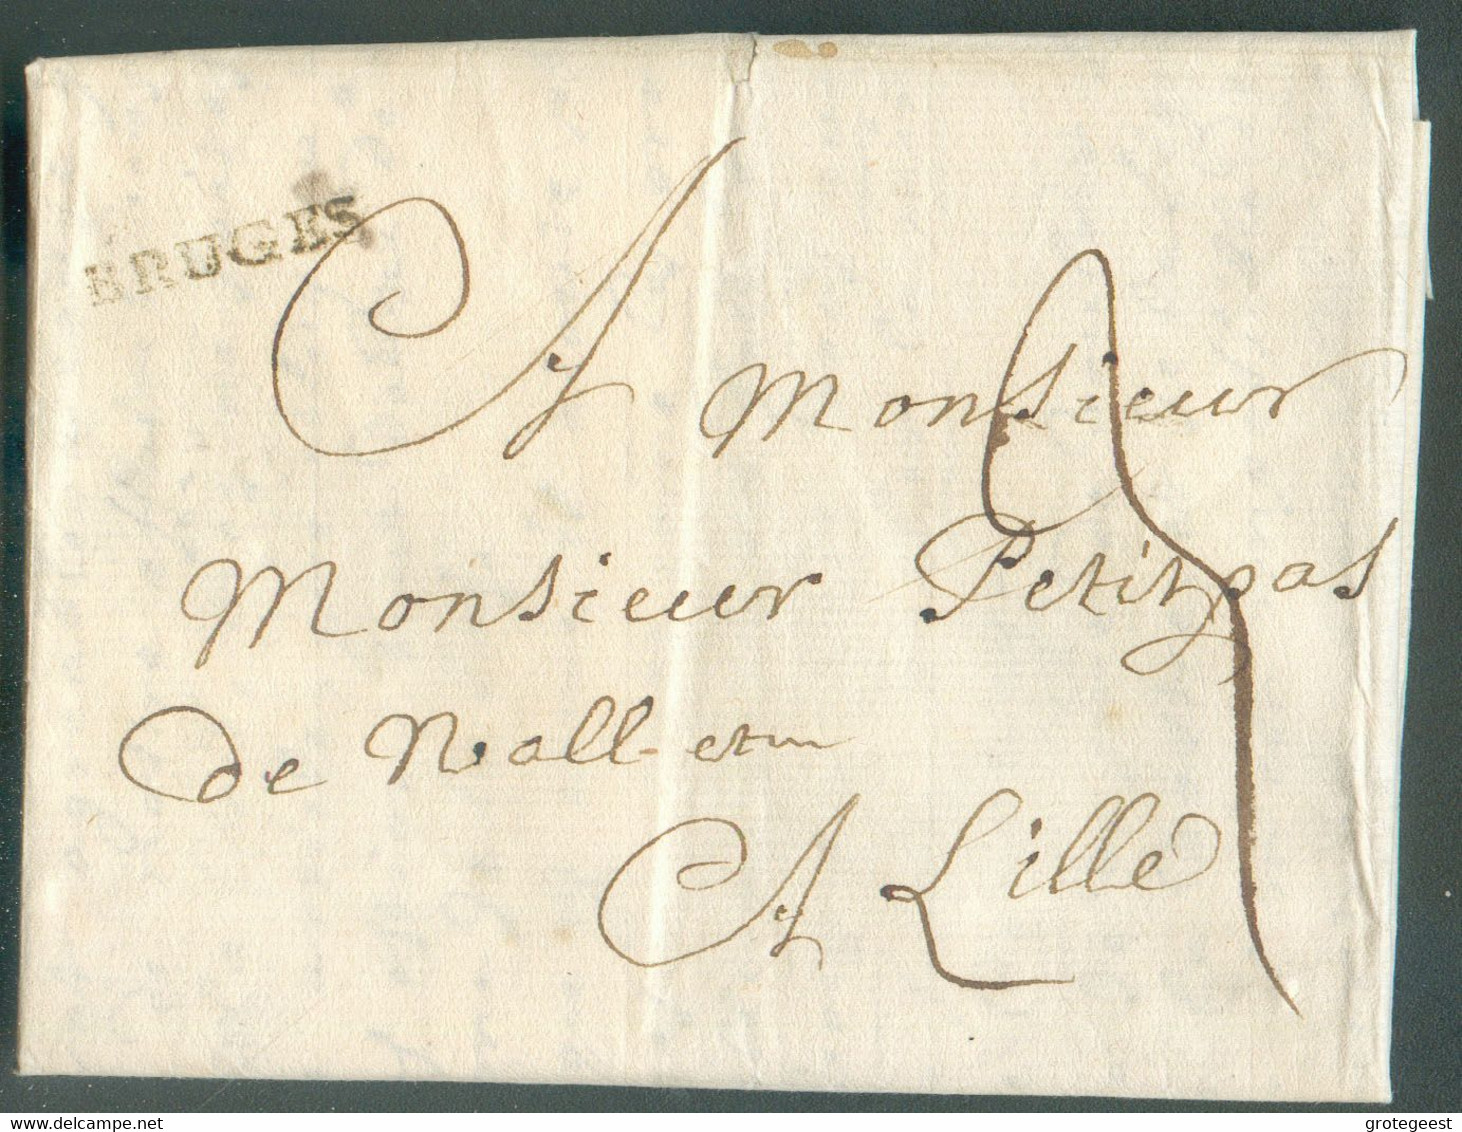 BRUGES
A Monsieur
Monsieur Petitpas
de Wall-etm
A Lille
delcampe.net
grotegeest